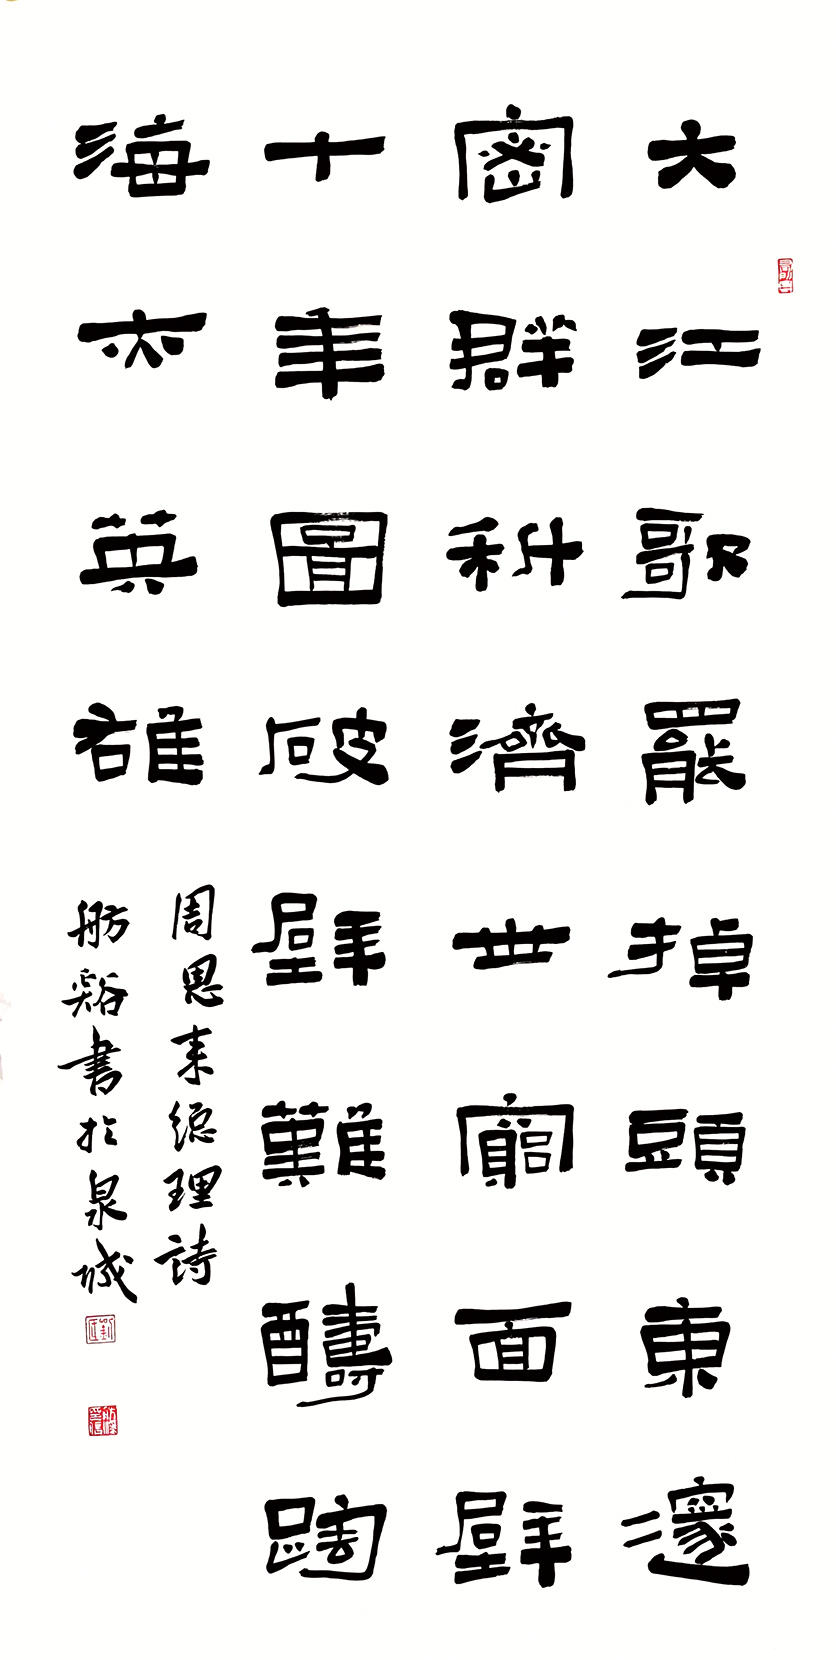 大江歌罷掉頭東邃
密群科濟世窮面壁
十年圖破壁難醻蹈
海亦英雄
周恩来總理詩
舫谿書於泉城